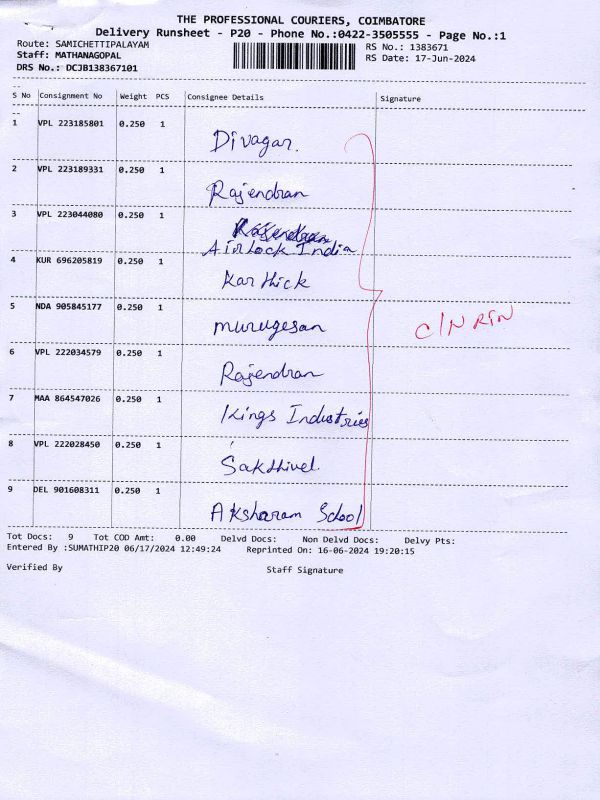 THE PROFESSIONAL COURIERS, COIMBATORE
Delivery Runsheet - P20 - Phone No.:0422-3505555 - Page No.:1
Route: SAMICHETTIPALAYAM RS No.: 1383671
Staff: MATHANAGOPAL RS Date: 17-Jun-2024
DRS No.: DCJB138367101
S No Consignment No Weight PCS Consignee Details Signature
1 VPL 223185801 0.250 1 Divagar.
2 VPL 223189331 0.250 1 Rajendran
3 VPL 223044080 0.250 1 Airlock India
4 KUR 696205819 0.250 1 Karthick
5 NDA 905845177 0.250 1 murugesan
C/N RTN
6 VPL 222034579 0.250 1 Rajendran
7 MAA 864547026 0.250 1 Kings Industries
8 VPL 222028450 0.250 1 Sakthivel.
9 DEL 901608311 0.250 1 Aksharam School
Tot Docs: 9 Tot COD Amt: 0.00 Delvd Docs: Non Delvd Docs: Delvy Pts:
Entered By :SUMATHIP20 06/17/2024 12:49:24 Reprinted On: 16-06-2024 19:20:15
Verified By Staff Signature